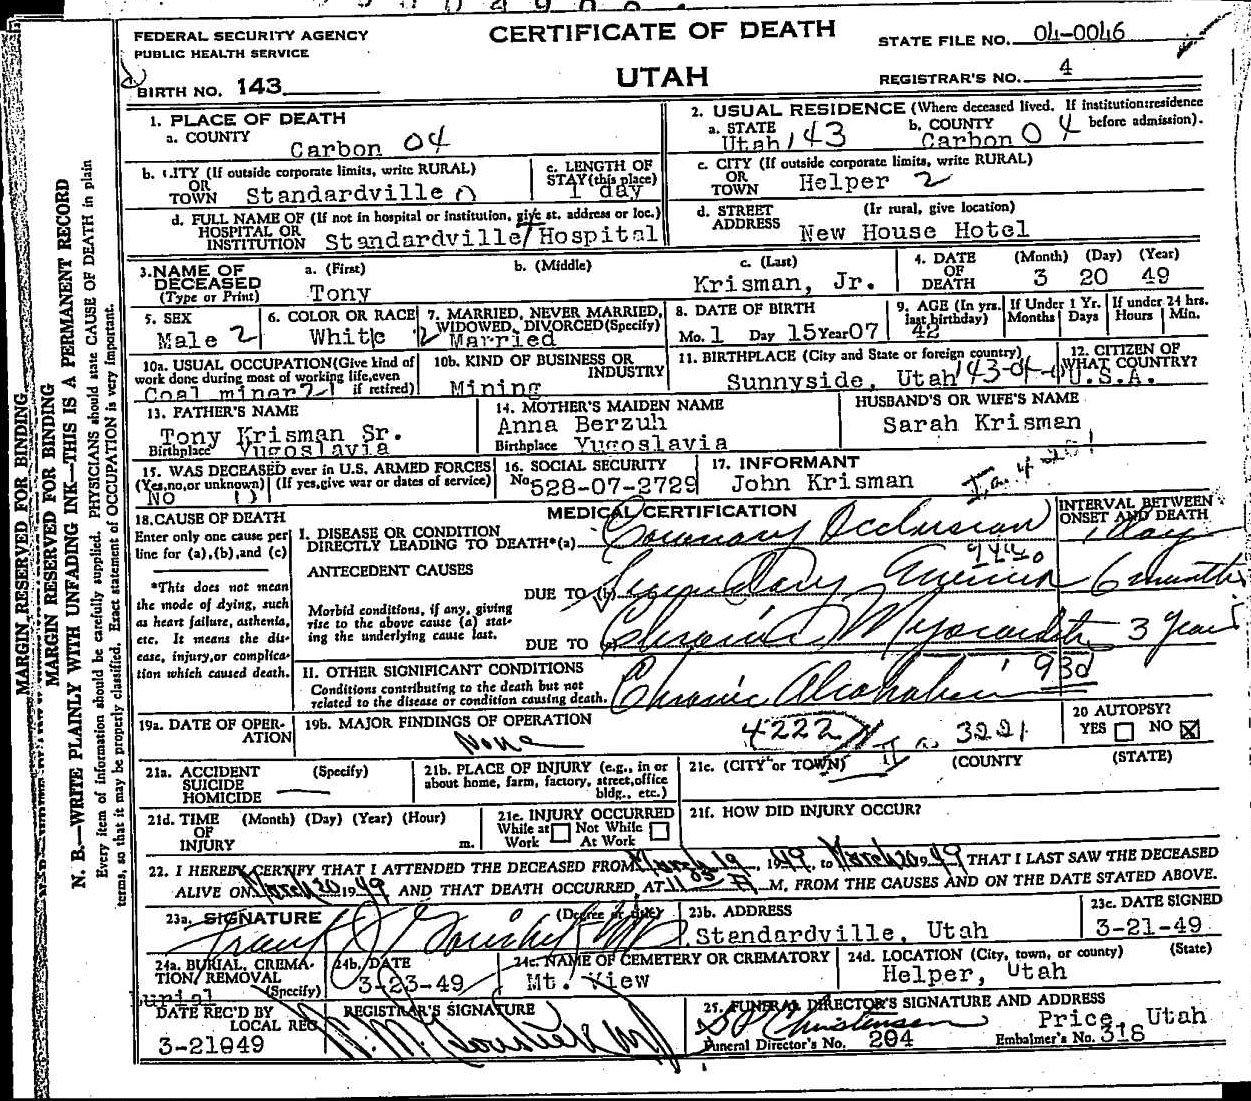 FEDERAL SECURITY AGENCY
PUBLIC HEALTH SERVICE
BIRTH NO. 143
CERTIFICATE OF DEATH
UTAH
STATE FILE NO. 04-0046
REGISTRAR'S NO. 4
MARGIN RESERVED FOR BINDING
MARGIN RESERVED FOR BINDING
N. B.—WRITE PLAINLY WITH UNFADING INK—THIS IS A PERMANENT RECORD
Every item of information should be carefully supplied. PHYSICIANS should state CAUSE OF DEATH in plain
terms, so that it may be properly classified. Exact statement of OCCUPATION is very important.
1. PLACE OF DEATH
a. COUNTY Carbon 04
2. USUAL RESIDENCE (Where deceased lived. If institution:residence before admission).
a. STATE Utah 143
b. COUNTY Carbon 04
b. CITY (If outside corporate limits, write RURAL) OR TOWN Standardville 0
c. LENGTH OF STAY (this place) 1 day
c. CITY (If outside corporate limits, write RURAL) OR TOWN Helper 2
d. FULL NAME OF (If not in hospital or institution, give st. address or loc.)
HOSPITAL OR INSTITUTION Standardville Hospital
d. STREET ADDRESS (Ir rural, give location)
New House Hotel
3. NAME OF DECEASED (Type or Print)
a. (First) Tony
b. (Middle)
c. (Last) Krisman, Jr.
4. DATE OF DEATH (Month) (Day) (Year)
3 20 49
5. SEX Male 2
6. COLOR OR RACE White
7. MARRIED, NEVER MARRIED, WIDOWED, DIVORCED(Specify) 2 Married
8. DATE OF BIRTH
Mo. 1 Day 15 Year 07
9. AGE (In yrs. last birthday) 42
If Under 1 Yr. Months Days
If under 24 hrs. Hours Min.
10a. USUAL OCCUPATION(Give kind of work done during most of working life,even if retired) Coal miner
10b. KIND OF BUSINESS OR INDUSTRY Mining
11. BIRTHPLACE (City and State or foreign country)
Sunnyside, Utah
12. CITIZEN OF WHAT COUNTRY? U.S.A.
13. FATHER'S NAME
Tony Krisman Sr.
Birthplace Yugoslavia
14. MOTHER'S MAIDEN NAME
Anna Berzuh
Birthplace Yugoslavia
HUSBAND'S OR WIFE'S NAME
Sarah Krisman
15. WAS DECEASED ever in U.S. ARMED FORCES
(Yes,no,or unknown) (If yes,give war or dates of service)
No
16. SOCIAL SECURITY
No. 528-07-2729
17. INFORMANT
John Krisman
MEDICAL CERTIFICATION
INTERVAL BETWEEN ONSET AND DEATH
18. CAUSE OF DEATH
Enter only one cause per line for (a),(b),and (c)
*This does not mean the mode of dying, such as heart failure, asthenia, etc. It means the disease, injury,or complication which caused death.
I. DISEASE OR CONDITION DIRECTLY LEADING TO DEATH*(a) Coronary Occlusion 1 Day
ANTECEDENT CAUSES
Morbid conditions, if any, giving rise to the above cause (a) stating the underlying cause last.
DUE TO (b) Secondary Anemia 6 months
DUE TO (c) Chronic Myocarditis 3 years
II. OTHER SIGNIFICANT CONDITIONS
Conditions contributing to the death but not related to the disease or condition causing death.
Chronic Alcoholism 93d
19a. DATE OF OPERATION
19b. MAJOR FINDINGS OF OPERATION
None
4222 3221
20 AUTOPSY?
YES NO
21a. ACCIDENT SUICIDE HOMICIDE (Specify)
21b. PLACE OF INJURY (e.g., in or about home, farm, factory, street,office bldg., etc.)
21c. (CITY or TOWN) (COUNTY) (STATE)
21d. TIME OF INJURY (Month) (Day) (Year) (Hour) m.
21e. INJURY OCCURRED
While at Work Not While At Work
21f. HOW DID INJURY OCCUR?
22. I HEREBY CERTIFY THAT I ATTENDED THE DECEASED FROM March 19, 1949, to March 20 1949 THAT I LAST SAW THE DECEASED
ALIVE ON March 20 1949 AND THAT DEATH OCCURRED, AT M. FROM THE CAUSES AND ON THE DATE STATED ABOVE.
23a. SIGNATURE (Degree or title)
23b. ADDRESS
Standardville, Utah
23c. DATE SIGNED
3-21-49
24a. BURIAL, CREMATION, REMOVAL (Specify)
Burial
24b. DATE
3-23-49
24c. NAME OF CEMETERY OR CREMATORY
Mt. View
24d. LOCATION (City, town, or county) (State)
Helper, Utah
DATE REC'D BY LOCAL REG.
3-21949
REGISTRAR'S SIGNATURE
25. FUNERAL DIRECTOR'S SIGNATURE AND ADDRESS
Christensen Price, Utah
Funeral Director's No. 204 Embalmer's No. 318